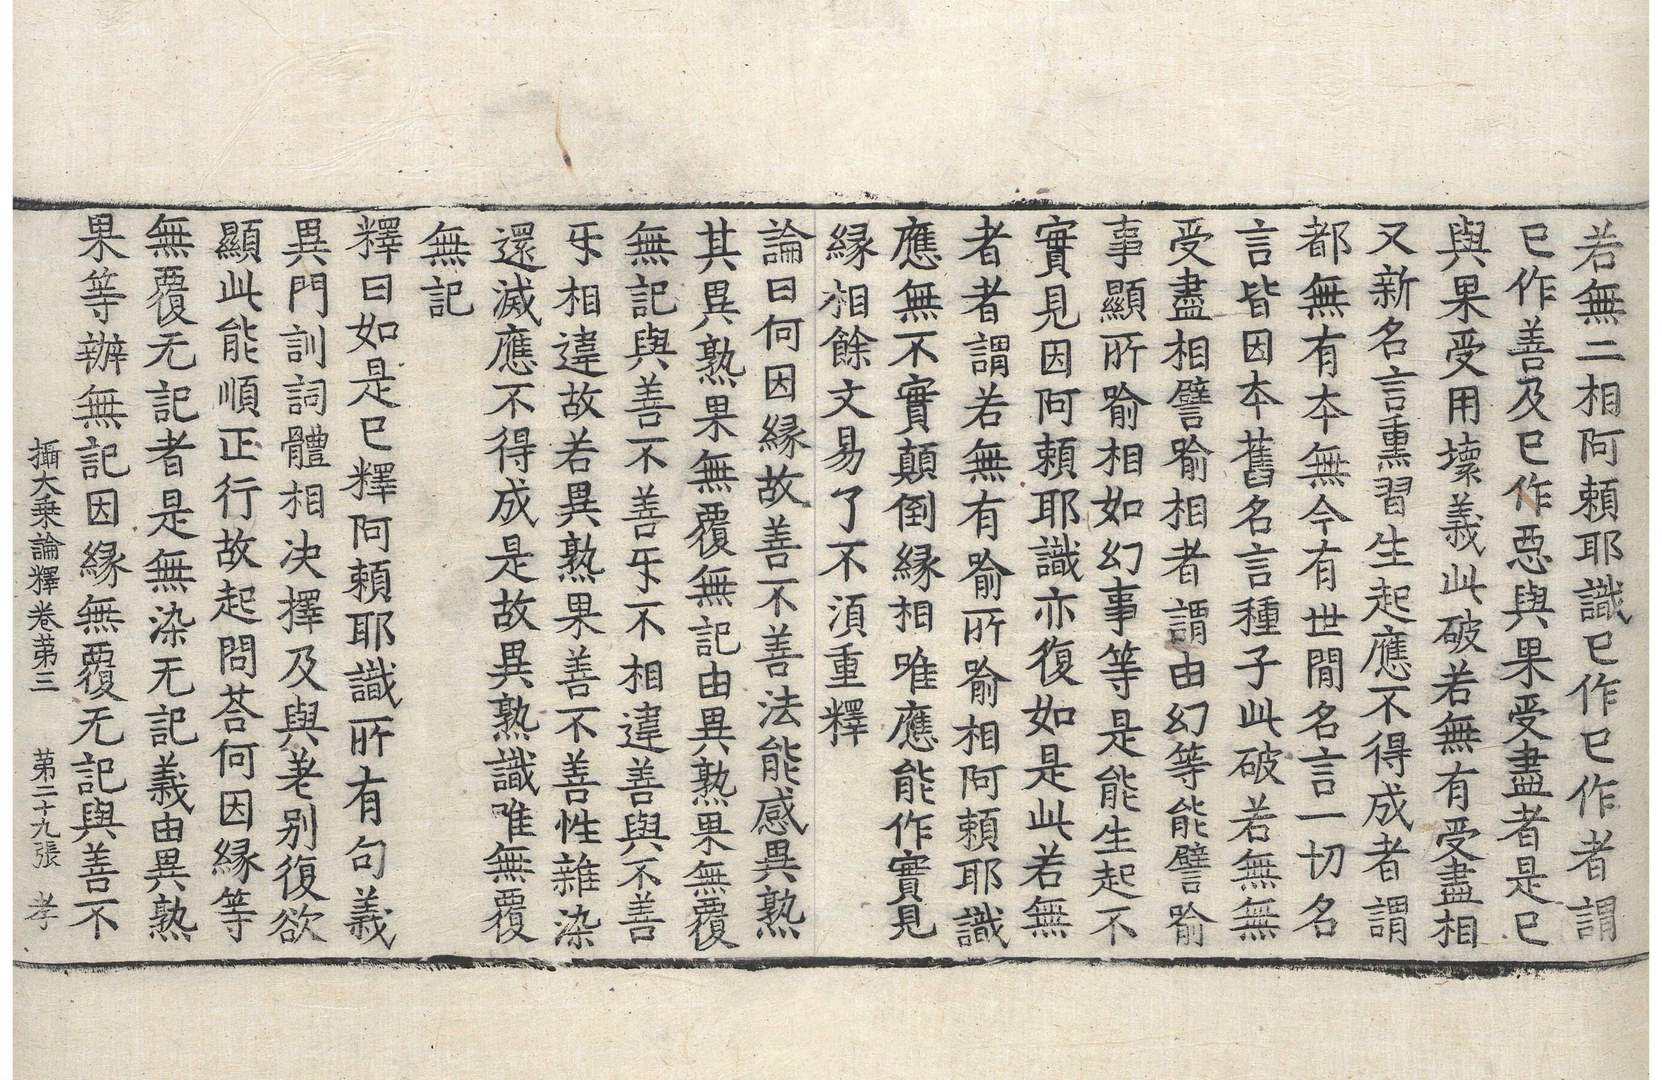 若無二相阿頼耶識巳作巳作者謂
巳作善及巳作惡與果受盡者是巳
與果受用壞義此破若無有受盡相
又新名言熏習生起應不得成者謂
都無有夲無今有世間名言一切名
言皆因夲舊名言種子此破若無無
受盡相譬喻相者謂由幻等能譬喻
事顯所喻相如幻事等是能生起不
實見因阿頼耶識亦復如是此若無
者者謂若無有喻所喻相阿頼耶識
應無不實顛倒縁相唯應能作實見
縁相餘文易了不湏重釋
論曰何因縁故善不善法能感異熟
其異熟果無覆無記由異熟果無覆
無記與善不善㸦不相違善與不善
㸦相違故若異熟果善不善性雜染
還滅應不得成是故異熟識唯無覆
無記
釋曰如是巳釋阿頼耶識所有句義
異門訓詞體相决擇及與差别復欲
顯此能順正行故起問荅何因縁等
無覆无記者是無染无記義由異熟
果等辦無記因縁無覆无記與善不
攝大乗論釋卷第三　第二十九張　孝